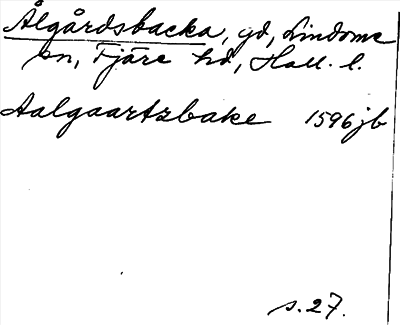 Ålgårdsbacka, gd, Lindome
sn, Fjäre hd, Hall. l.
Aalgaartzbake 1596 jb
s. 27.